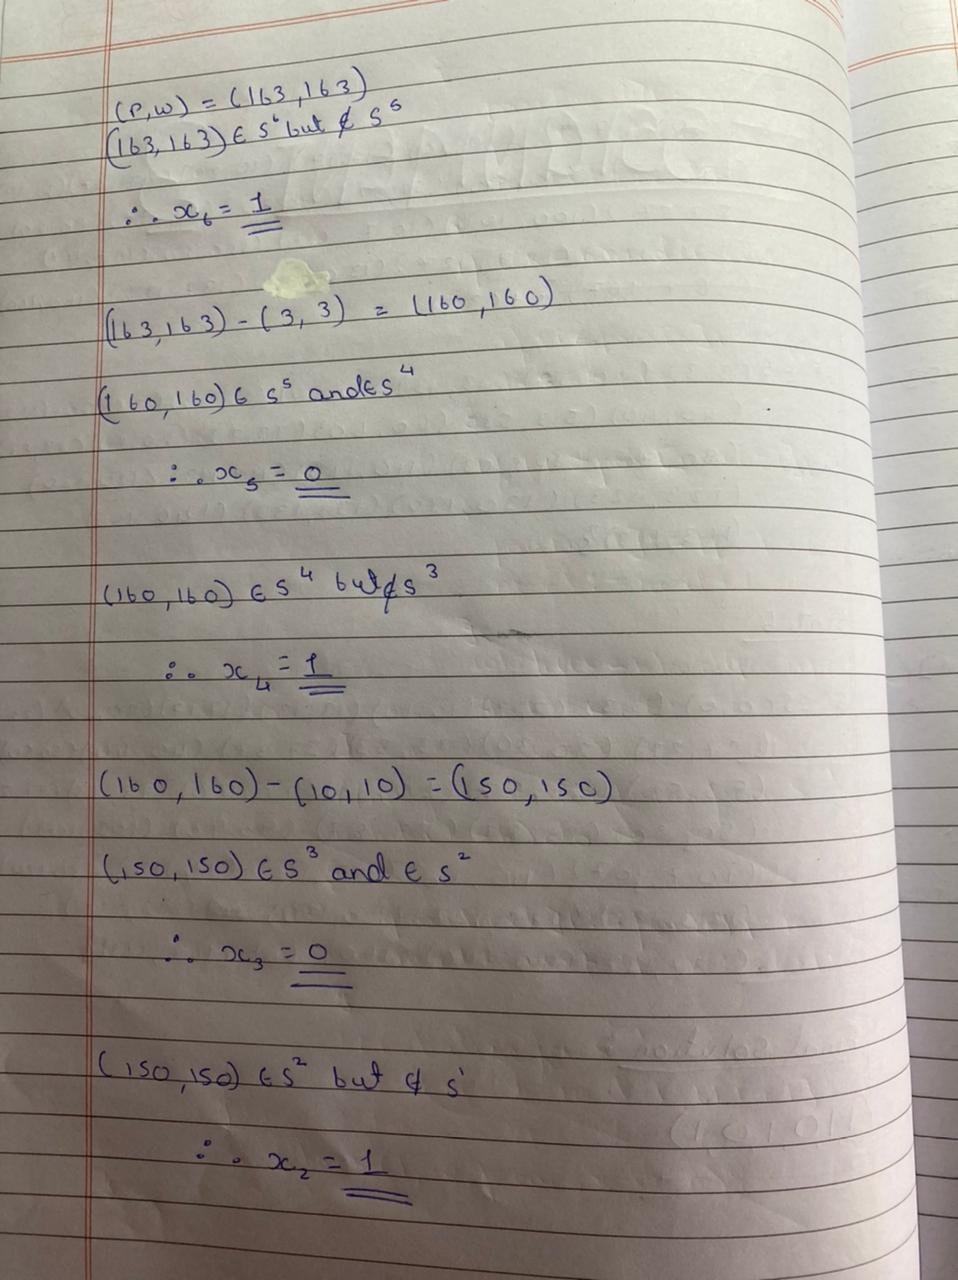 (P,W) = (163,163)
(163,163) ∈ S⁶ but ∉ S⁵
∴ x₆ = 1
(163,163) - (3,3) = (160,160)
(160,160) ∈ S⁵ and ∈ S⁴
∴ x₅ = 0
(160,160) ∈ S⁴ but ∉ S³
∴ x₄ = 1
(160,160) - (10,10) = (150,150)
(150,150) ∈ S³ and ∈ S²
∴ x₃ = 0
(150,150) ∈ S² but ∉ S¹
∴ x₂ = 1